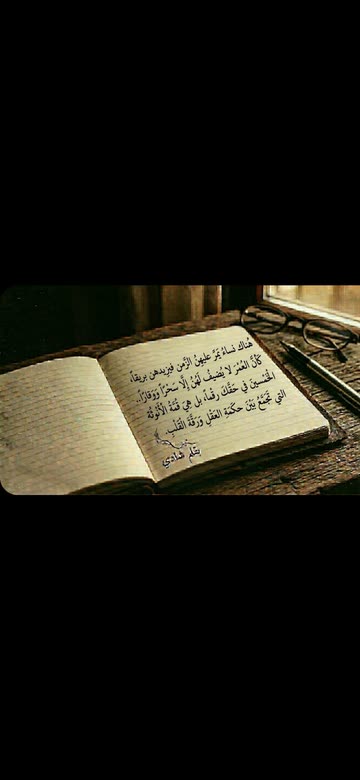 هُنَاكَ نِسَاءٌ يَمُرُّ عَلَيهِنَّ الزَّمَن فَيَزِيدهن بَرِيقاً،
كَأنَّ العُمْرَ لَا يُضِيفُ لَهُنَّ إِلَّا سِحْرًا وَوَقَارًا..
الخَمْسِينَ فِي حَقِّكَ رقماً، بل هِيَ قِمَّةُ الأُنُوثَة
الَّتِي تَجْمَعُ بَيْنَ حِكْمَةِ العَقْلِ وَرِقَّةِ القَلْبِ.
بِقَلَم